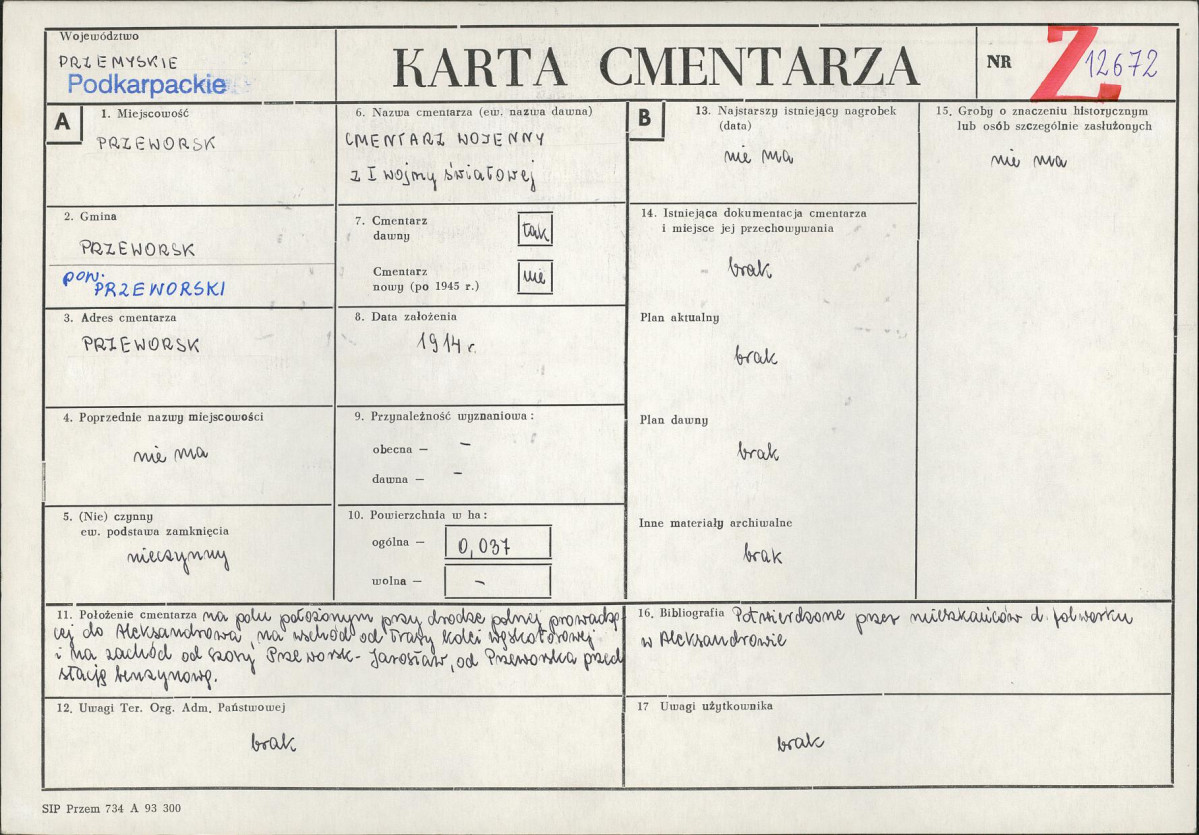 Województwo
PRZEMYSKIE
Podkarpackie
KARTA CMENTARZA
NR
Z 12672
A
1. Miejscowość
PRZEWORSK
2. Gmina
PRZEWORSK
pow. PRZEWORSKI
3. Adres cmentarza
PRZEWORSK
4. Poprzednie nazwy miejscowości
nie ma
5. (Nie) czynny
ew. podstawa zamknięcia
nieczynny
6. Nazwa cmentarza (ew. nazwa dawna)
CMENTARZ WOJENNY
z I wojny światowej
7. Cmentarz
dawny
tak
Cmentarz
nowy (po 1945 r.)
nie
8. Data założenia
1914 r.
9. Przynależność wyznaniowa:
obecna — –
dawna — –
10. Powierzchnia w ha:
ogólna — 0,037
wolna — –
B
13. Najstarszy istniejący nagrobek
(data)
nie ma
14. Istniejąca dokumentacja cmentarza
i miejsce jej przechowywania
brak
Plan aktualny
brak
Plan dawny
brak
Inne materiały archiwalne
brak
15. Groby o znaczeniu historycznym
lub osób szczególnie zasłużonych
nie ma
11. Położenie cmentarza na polu położonym przy drodze polnej prowadzą-
cej do Aleksandrowa, na wschód od trasy kolei wąskotorowej
i na zachód od szosy Przeworsk - Jarosław, od Przeworska przed
stacją benzynową.
16. Bibliografia Potwierdzone przez mieszkańców d. folwarku
w Aleksandrowie
12. Uwagi Ter. Org. Adm. Państwowej
brak
17 Uwagi użytkownika
brak
SIP Przem 734 A 93 300